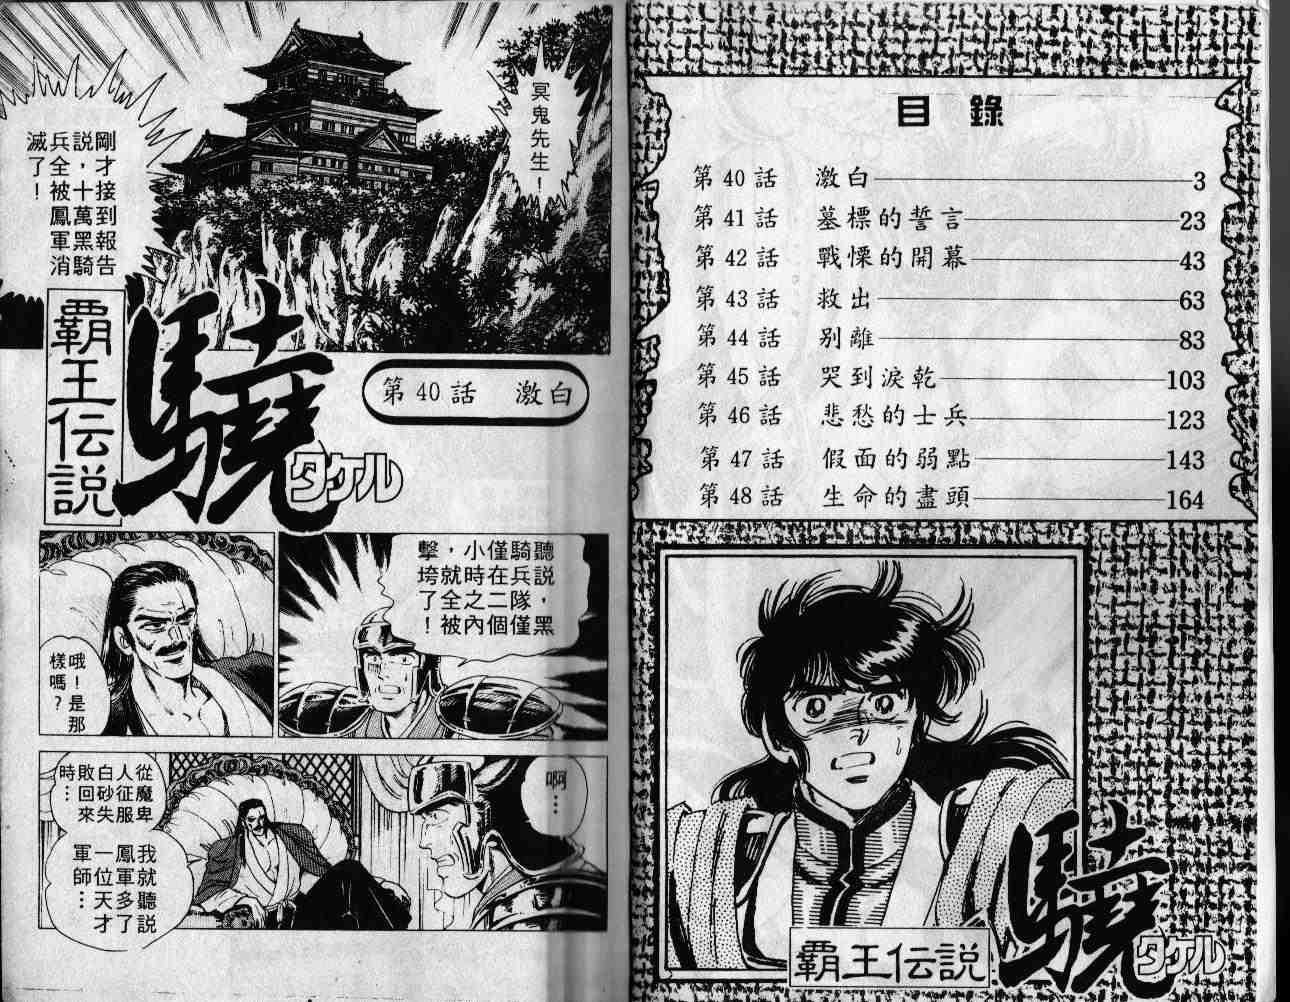 目錄
第40話 激白 3
第41話 墓標的誓言 23
第42話 戰慄的開幕 43
第43話 救出 63
第44話 別離 83
第45話 哭到淚乾 103
第46話 悲愁的士兵 123
第47話 假面的弱點 143
第48話 生命的盡頭 164
覇王伝説
驍
タケル
冥鬼先生！
剛才接到報告
説，十萬黑騎
兵全被鳳軍消
滅了！
覇王伝説
驍
タケル
第40話 激白
聽説，黑
騎兵隊僅
僅在二個
小時之內
，就全被
擊垮了！
哦！是那
樣嗎？
啊…
從魔卑
人征服
白砂失
敗回來
時…
我就聽説
鳳軍多了
一位天才
軍師…